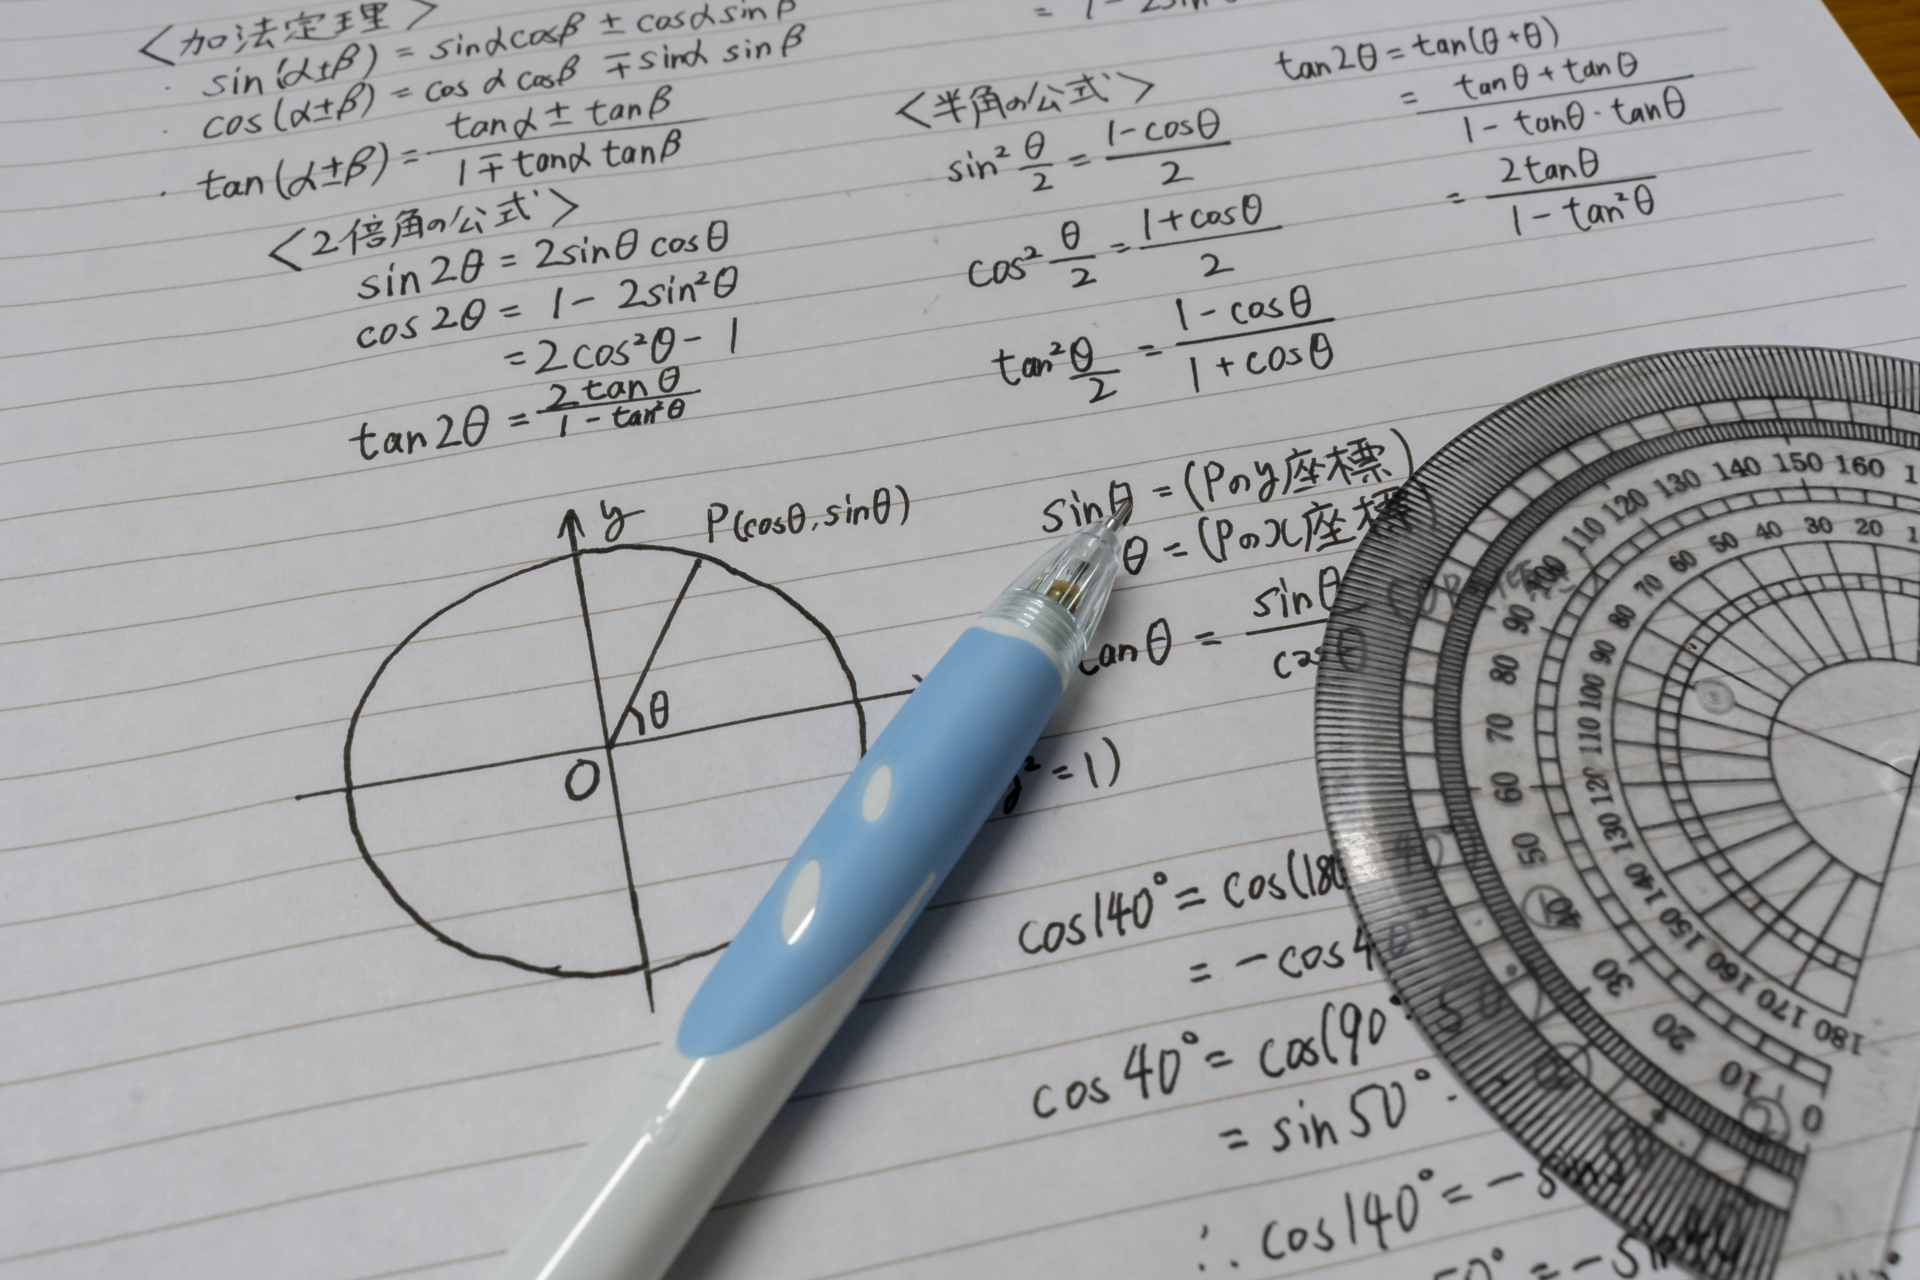 <加法定理>
sin(α±β) = sinαcosβ ± cosαsinβ
cos(α±β) = cosαcosβ ∓ sinα sinβ
tan(α±β) = (tanα ± tanβ)/(1 ∓ tanα tanβ)
<2倍角の公式>
sin2θ = 2sinθ cosθ
cos2θ = 1 - 2sin²θ
= 2cos²θ - 1
tan2θ = 2tanθ/(1 - tan²θ)
<半角の公式>
sin² θ/2 = (1-cosθ)/2
cos² θ/2 = (1+cosθ)/2
tan² θ/2 = (1-cosθ)/(1+cosθ)
tan2θ = tan(θ+θ)
= (tanθ + tanθ)/(1 - tanθ·tanθ)
= 2tanθ/(1 - tan²θ)
y
P(cosθ, sinθ)
θ
O
sinθ = (Pのy座標)
θ = (Pのx座標)
tanθ = sinθ/cosθ
y² = 1)
cos140° = cos(180
= -cos4
cos40° = cos(90°
= sin50°
∴ cos140° = -sin
120 130 140 150 160
50 40 30 20
110 100 90 80 70 60 50 40 30 20 10 0
60 70 80 90 100 110 120 130 140 150 160 170 180